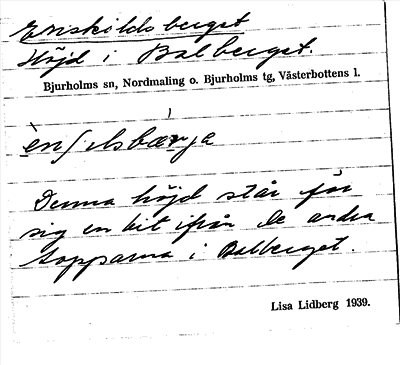 Enskildsberget
Höjd i Balberget.
Bjurholms sn, Nordmaling o. Bjurholms tg, Västerbottens l.
Denna höjd står för
sig en bit ifrån de andra
topparna i Balberget.
Lisa Lidberg 1939.